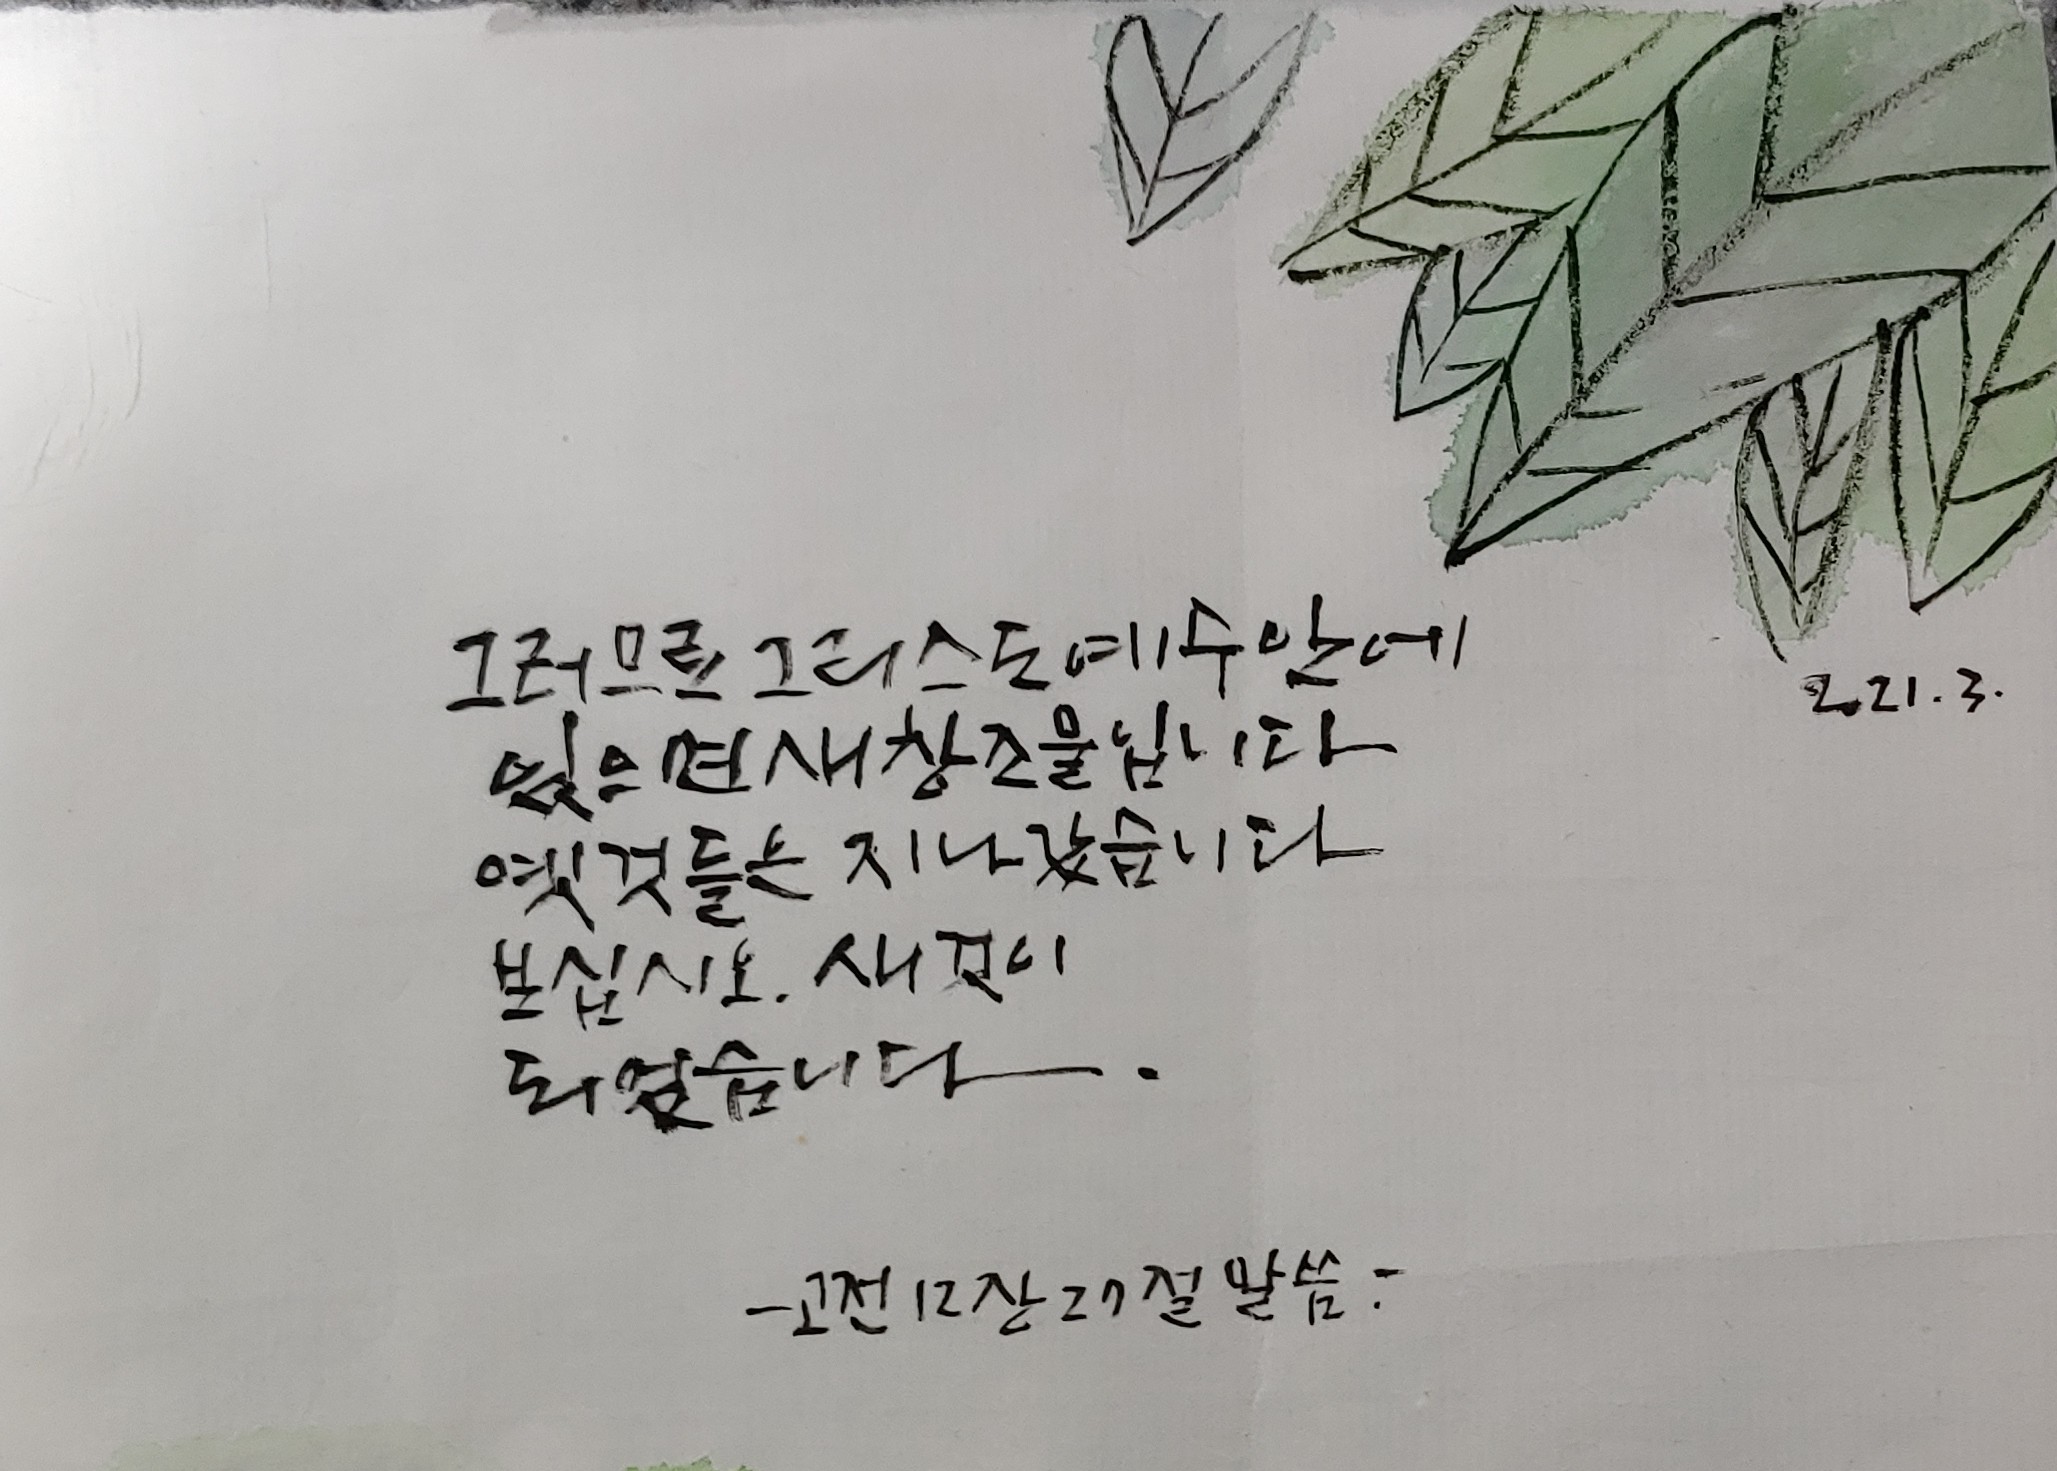 그러므로 그리스도 예수 안에
있으면 새 창조물입니다
옛것들은 지나갔습니다
보십시오. 새 것이
되었습니다.
2021.3.
-고전 12장 27절 말씀-